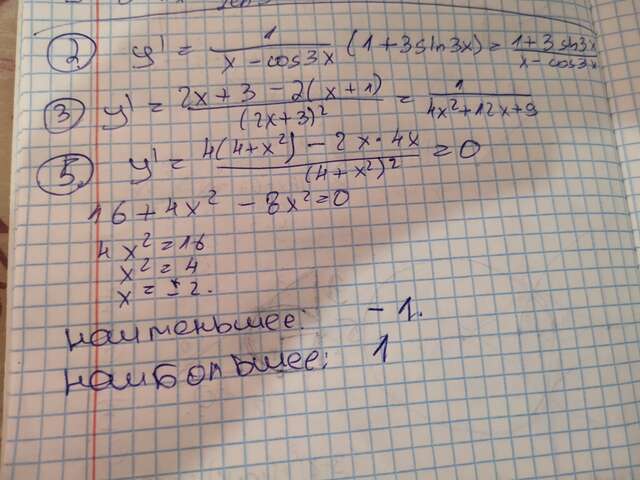 2. y' = 1/(x - cos3x) (1 + 3sin3x) = (1 + 3sin3x)/(x - cos3x)
3 y' = (2x + 3 - 2(x + 1))/(2x + 3)² = 1/(4x² + 12x + 9)
5. y' = (4(4 + x²) - 2x · 4x)/(4 + x²)² = 0
16 + 4x² - 8x² = 0
4x² = 16
x² = 4
x = ± 2.
наименьшее: -1.
наибольшее: 1